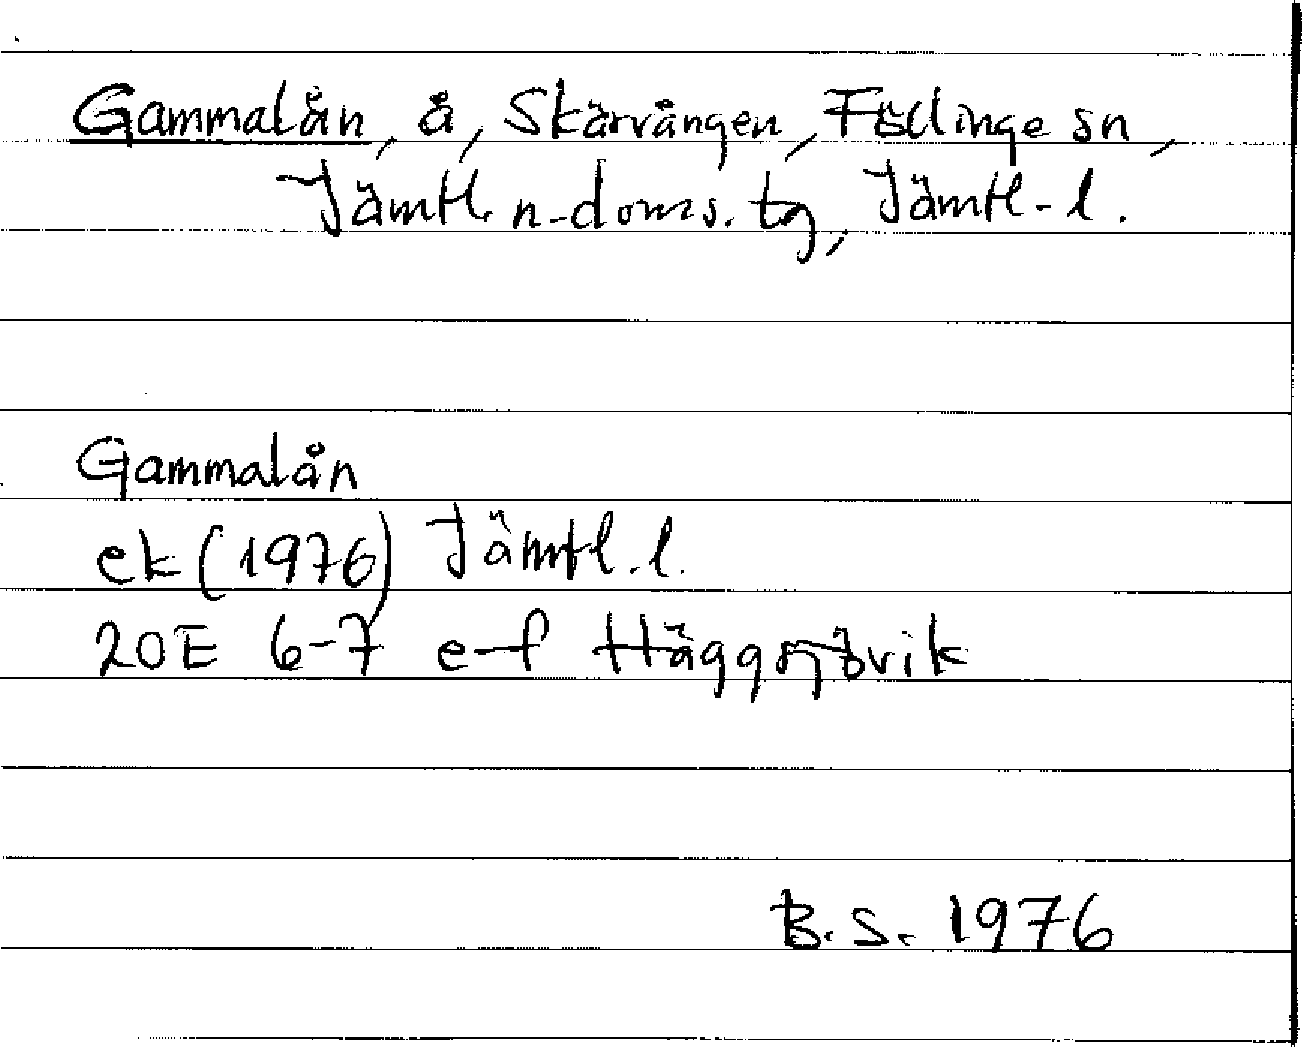 Gammalån, å, Skärvången, Föllinge sn,
Jämtl. n-doms. tg, Jämtl-l.
Gammalån
ek (1976) Jämtl. l.
20E 6-7 e-f Häggsjövik
B. S. 1976